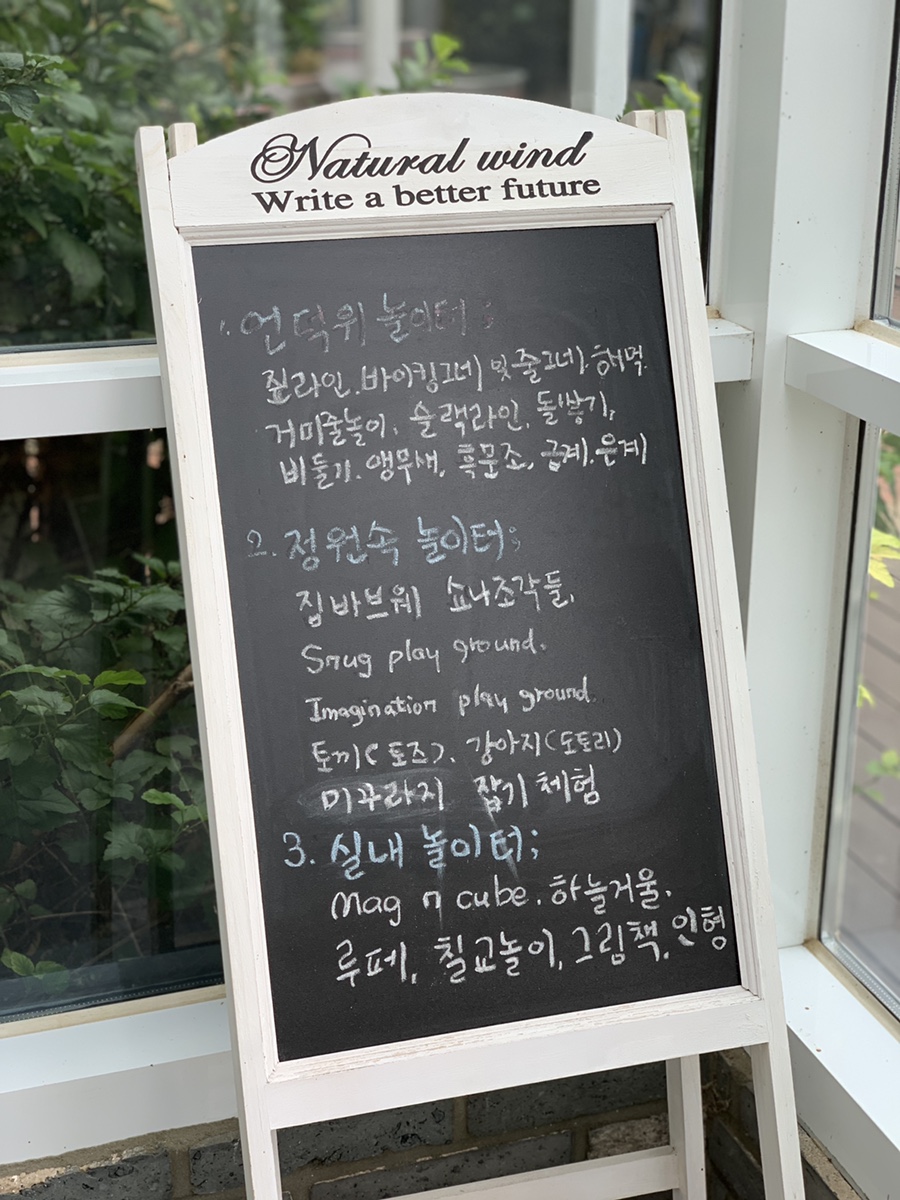 Natural wind
Write a better future
1. 언덕위 놀이터;
짚라인, 바이킹그네, 외줄그네, 해먹,
거미줄놀이, 슬랙라인, 돌쌓기,
비둘기, 앵무새, 흑문조, 금계, 은계
2. 정원속 놀이터;
집바브웨 쇼나조각들,
Snug play ground.
Imagination play ground.
토끼(토즈), 강아지(도토리)
미꾸라지 잡기 체험
3. 실내 놀이터;
Mag n cube, 하늘거울,
루페, 칠교놀이, 그림책, 인형